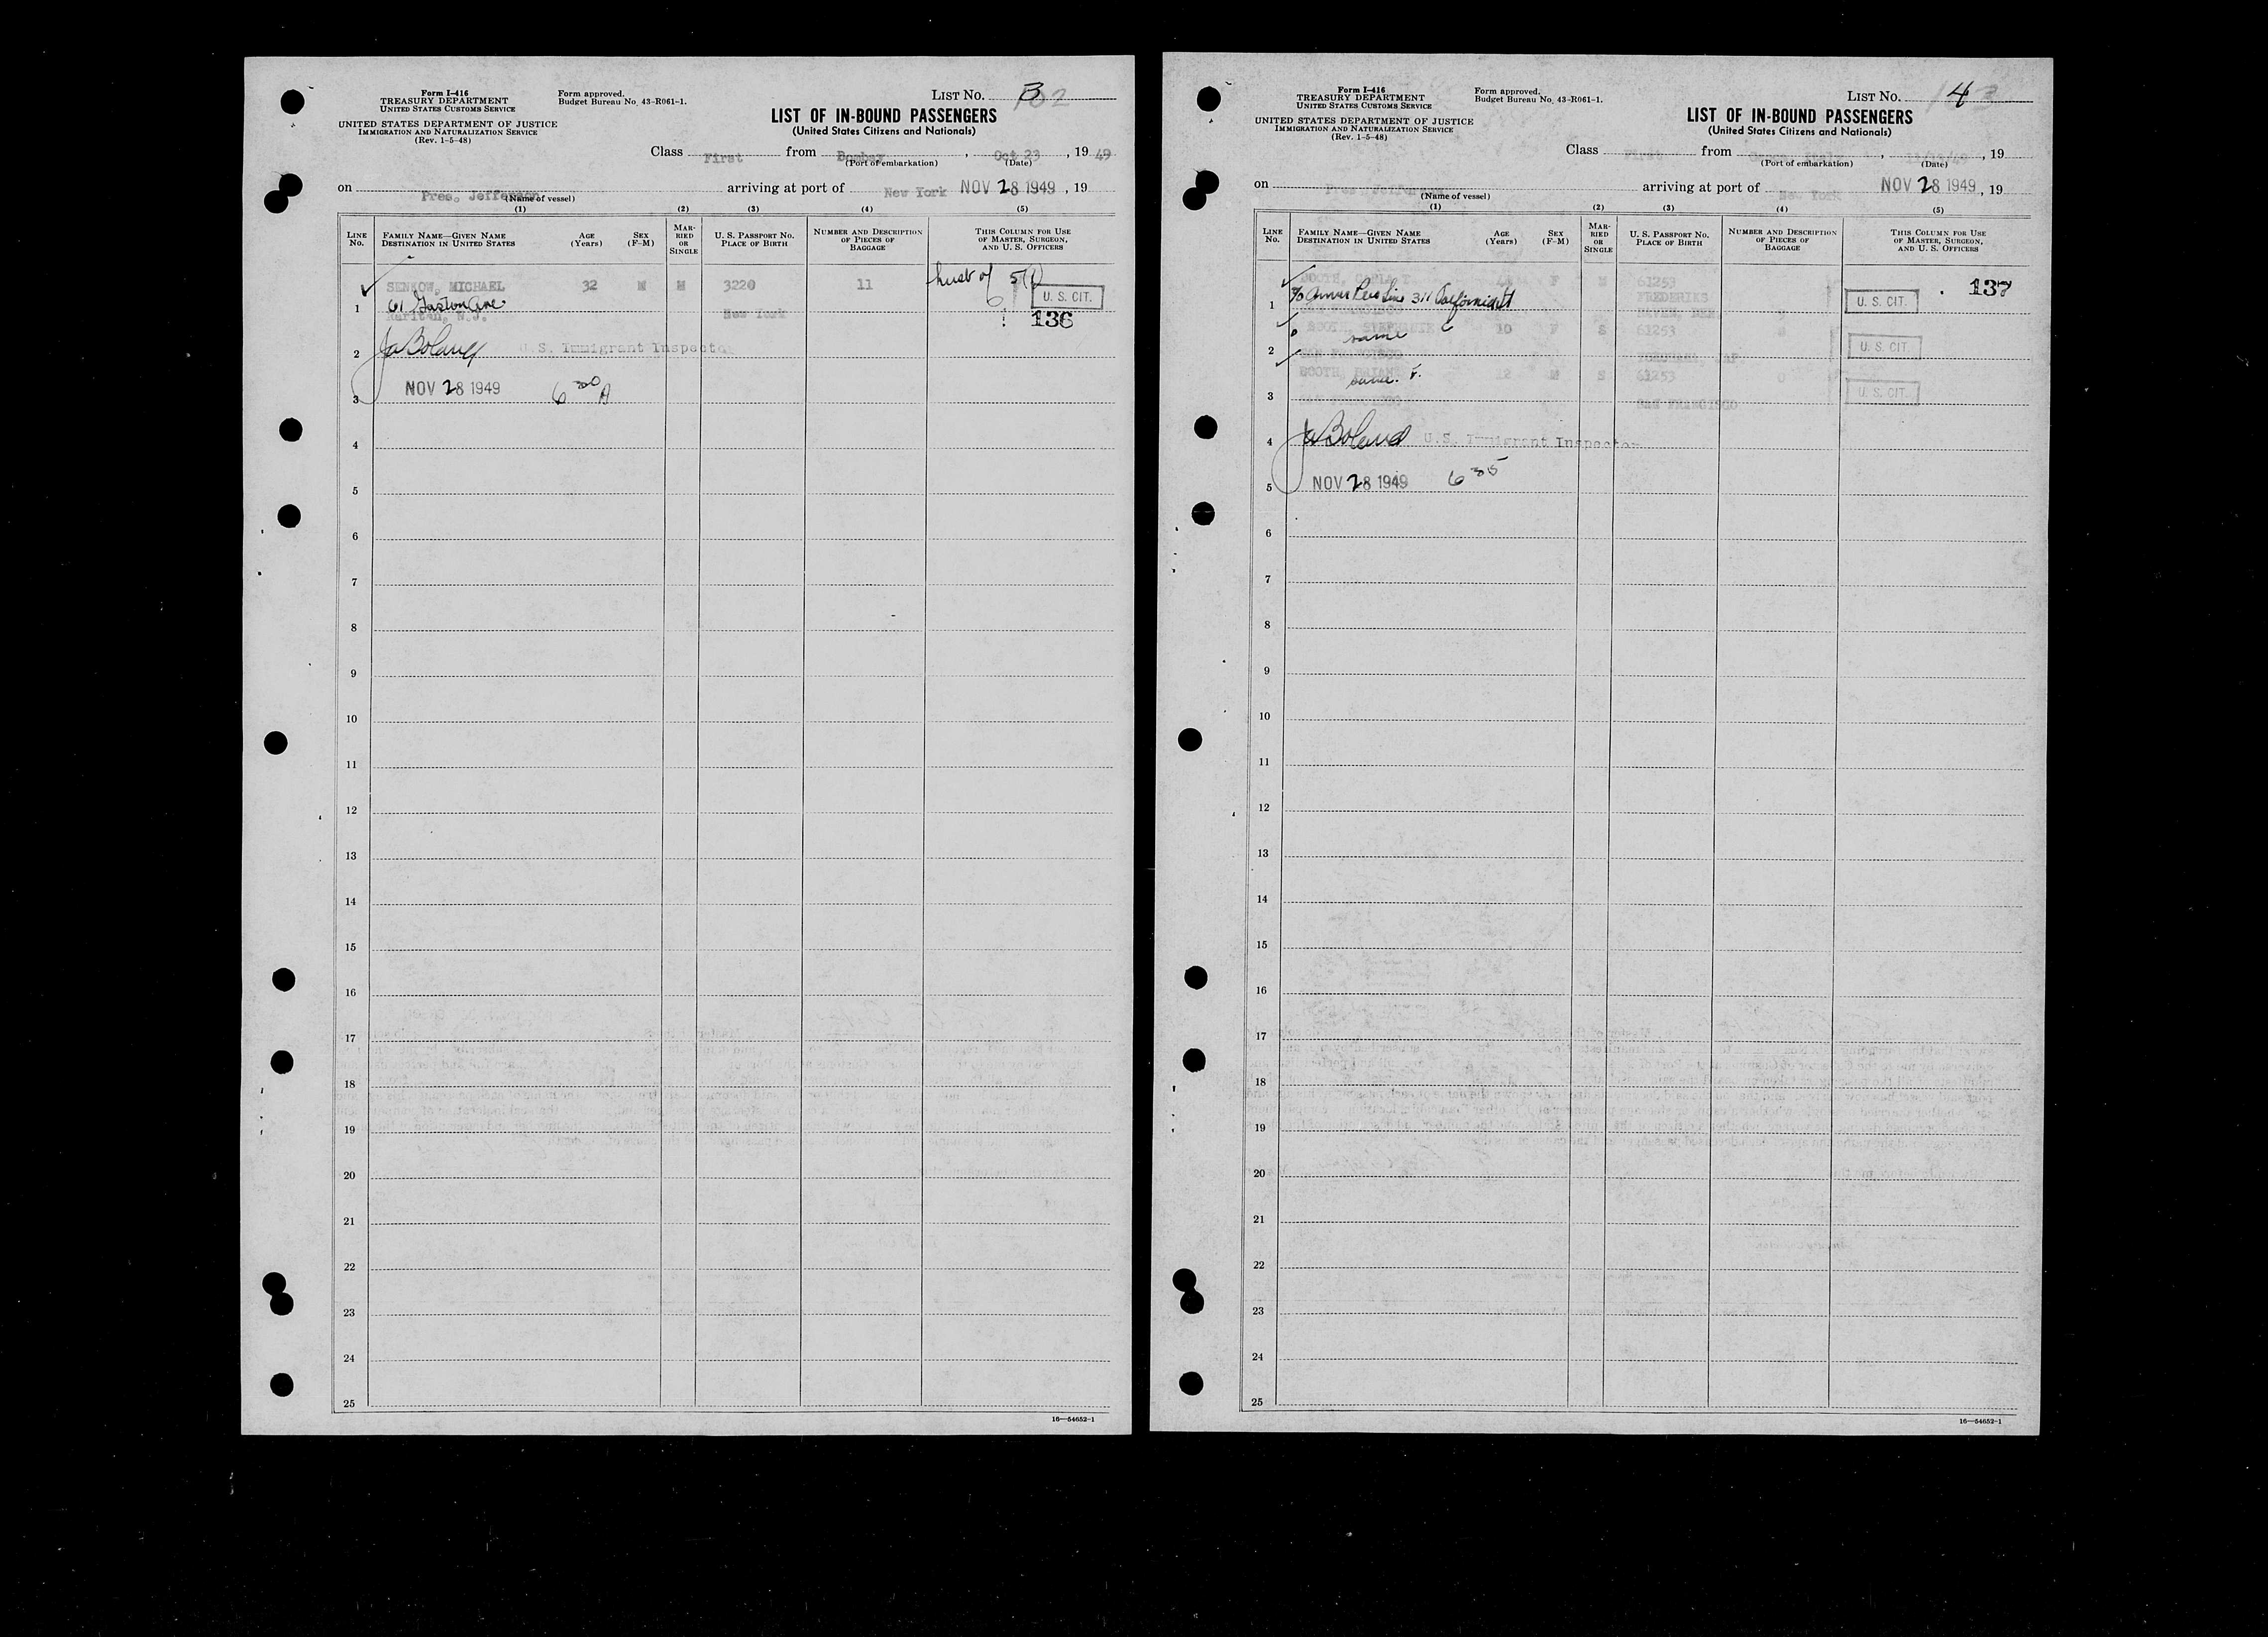 Form I-416
TREASURY DEPARTMENT
UNITED STATES CUSTOMS SERVICE
UNITED STATES DEPARTMENT OF JUSTICE
IMMIGRATION AND NATURALIZATION SERVICE
(Rev. 1-5-48)
Form approved.
Budget Bureau No. 43-R061-1.
LIST NO. 3
102
LIST OF IN-BOUND PASSENGERS
(United States Citizens and Nationals)
Class First from Bombay, Oct 23, 19 49
(Port of embarkation) (Date)
on Pres. Jefferson arriving at port of New York NOV 28 1949, 19
(Name of vessel)
(1) (2) (3) (4) (5)
LINE NO. FAMILY NAME—GIVEN NAME DESTINATION IN UNITED STATES AGE (Years) SEX (F-M) MARRIED OR SINGLE U. S. PASSPORT NO. PLACE OF BIRTH NUMBER AND DESCRIPTION OF PIECES OF BAGGAGE THIS COLUMN FOR USE OF MASTER, SURGEON, AND U. S. OFFICERS
SENKOW, MICHAEL 32 M M 3220 11 husb of 5(1)
1 61 Gaston Ave U. S. CIT.
Raritan, N.J. New York 136
2 JaBoland U.S. Immigrant Inspector
3 NOV 28 1949 6 30 A
4
5
6
7
8
9
10
11
12
13
14
15
16
17
18
19
20
21
22
23
24
25
16—54652-1
Form I-416
TREASURY DEPARTMENT
UNITED STATES CUSTOMS SERVICE
UNITED STATES DEPARTMENT OF JUSTICE
IMMIGRATION AND NATURALIZATION SERVICE
(Rev. 1-5-48)
Form approved.
Budget Bureau No. 43-R061-1.
LIST NO. 4
LIST OF IN-BOUND PASSENGERS
(United States Citizens and Nationals)
Class First from , , 19
(Port of embarkation) (Date)
on Pres Jefferson arriving at port of New York NOV 28 1949, 19
(Name of vessel)
(1) (2) (3) (4) (5)
LINE NO. FAMILY NAME—GIVEN NAME DESTINATION IN UNITED STATES AGE (Years) SEX (F-M) MARRIED OR SINGLE U. S. PASSPORT NO. PLACE OF BIRTH NUMBER AND DESCRIPTION OF PIECES OF BAGGAGE THIS COLUMN FOR USE OF MASTER, SURGEON, AND U. S. OFFICERS
BOOTH, F M 61253 137
1 % Amer Pres Line 311 California St U. S. CIT.
SAN FRANCISCO
BOOTH, STEPHANIE 10 F S 61253
2 same U. S. CIT.
SAN FRANCISCO
BOOTH, BRIAN 12 M S 61253
3 same. U. S. CIT.
SAN FRANCISCO
4 JaBoland U.S. Immigrant Inspector
5 NOV 28 1949 6 35
6
7
8
9
10
11
12
13
14
15
16
17
18
19
20
21
22
23
24
25
16—54652-1